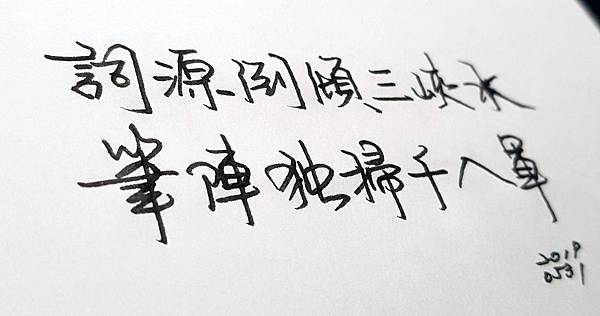 詞源倒傾三峽水
筆陣独掃千人軍
2019
0531